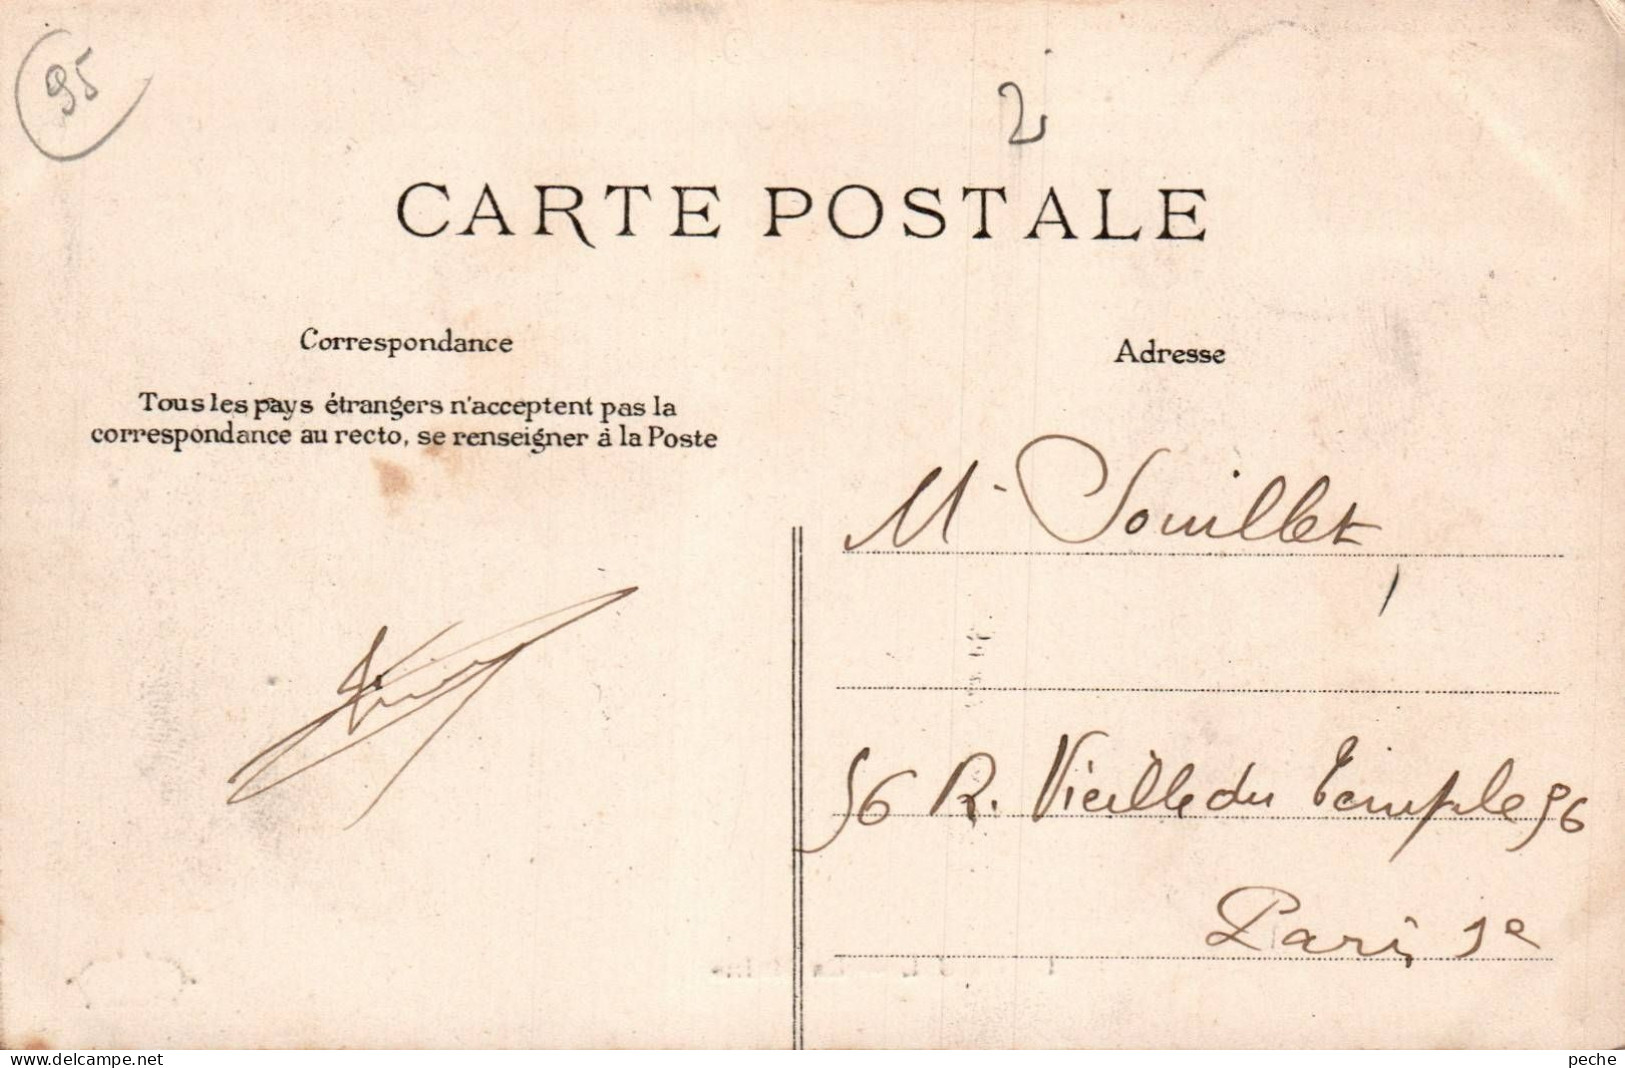 95
2
CARTE POSTALE
Correspondance
Tous les pays étrangers n'acceptent pas la
correspondance au recto, se renseigner à la Poste
Adresse
Mr Souillet
56 R. Vieille du Temple 56
Paris
delcampe.net
peche